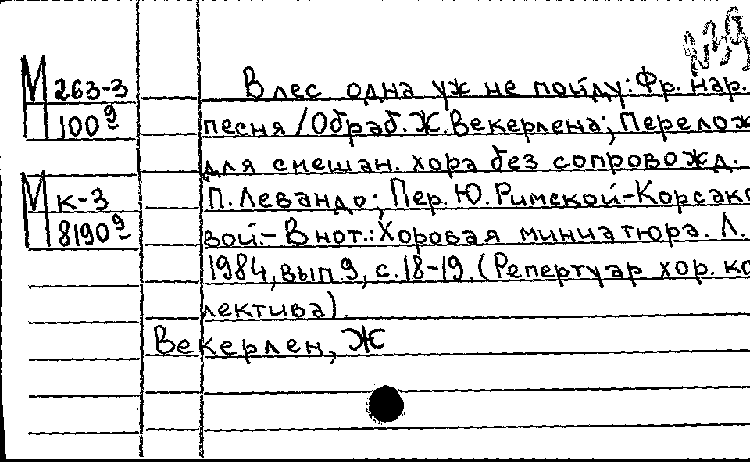 239
М 263-3
100 9
В лес одна уж не пойду: Фр. нар.
песня / Обраб. Ж. Векерлена; Перелож
для смешан. хора без сопровожд.
М К-3
8190 9
П. Левандо; Пер. Ю. Римской-Корсако
вой.- В нот.: Хоровая миниатюра. Л.
1984, вып. 9, с. 18-19. (Репертуар хор. ко
лектива).
Векерлен, Ж